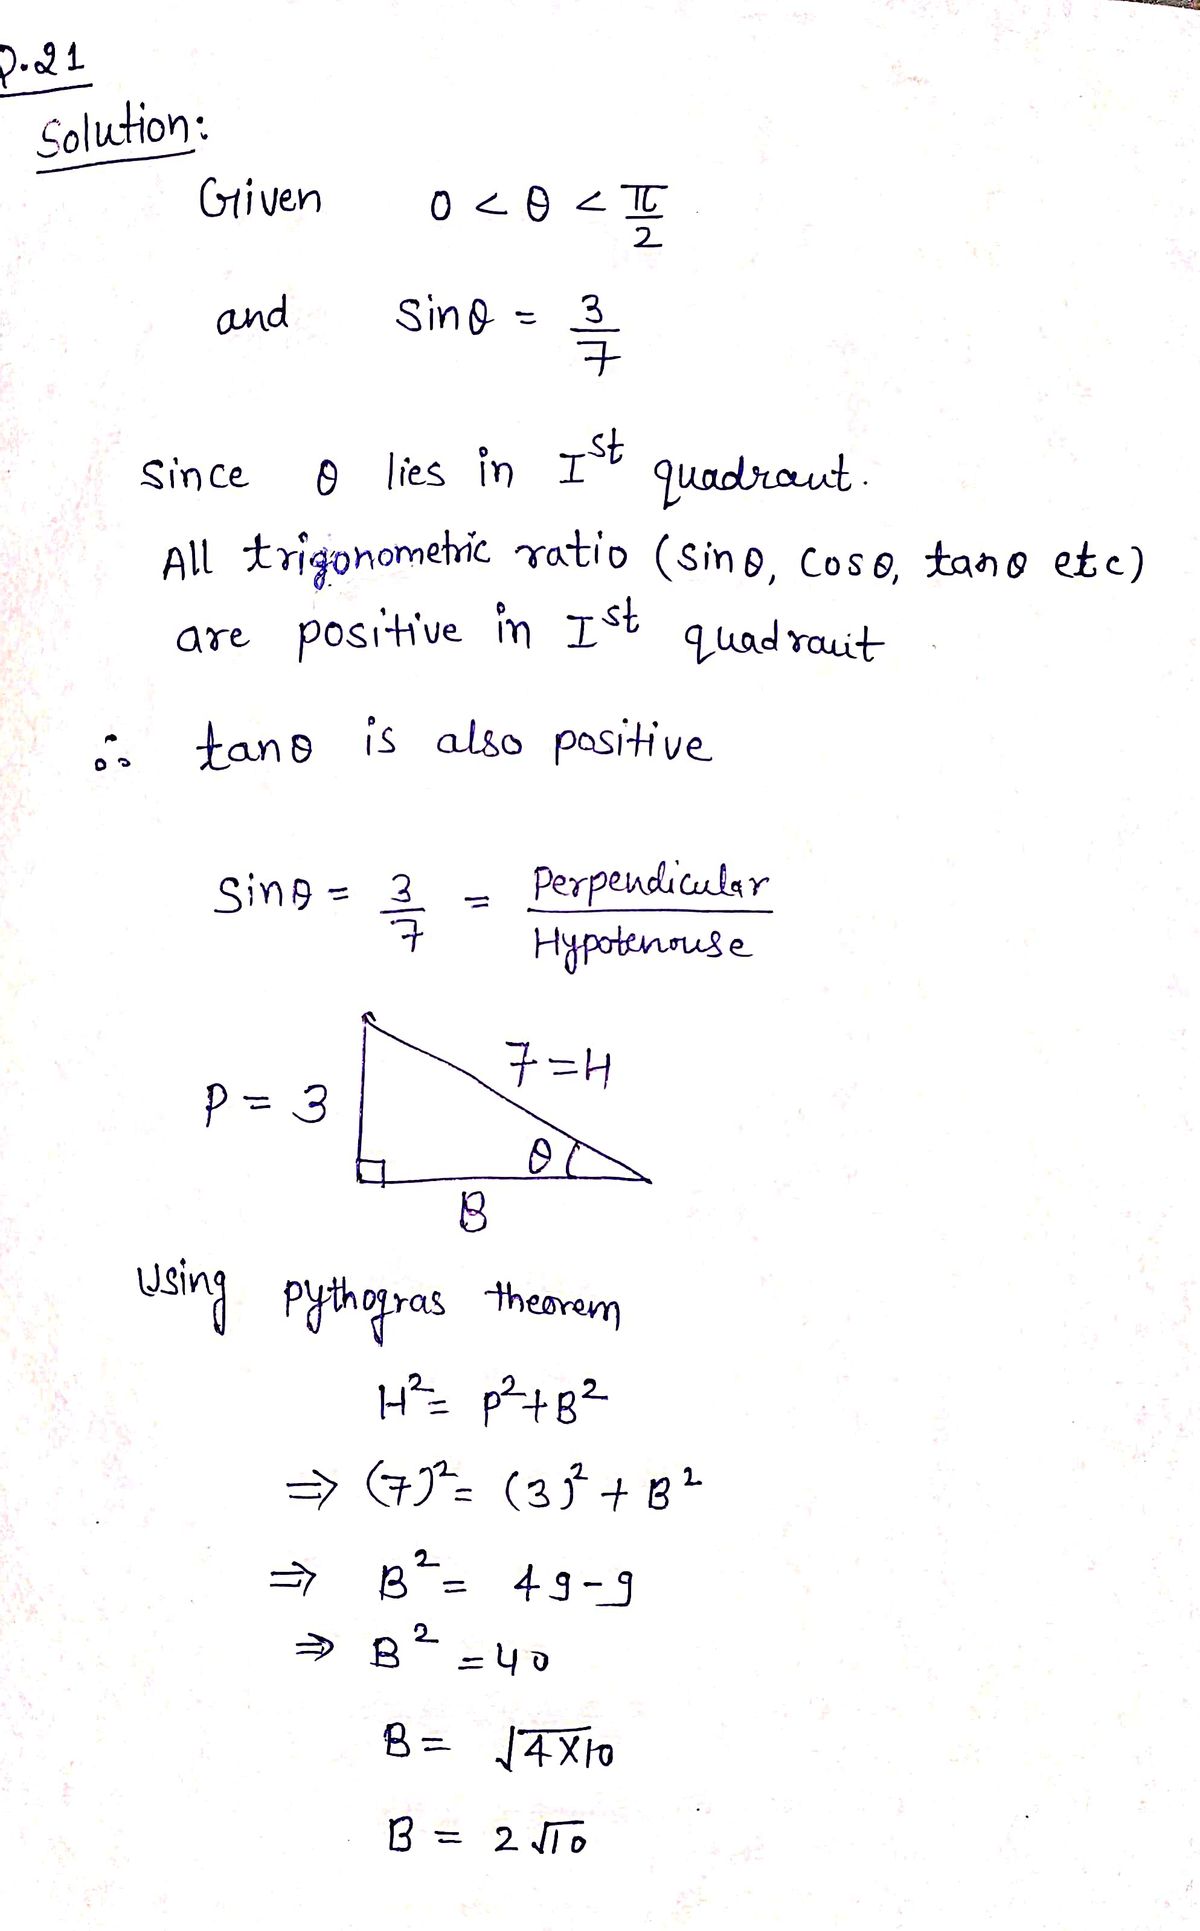 Q.21
Solution:
Given 0 < θ < π/2
and Sinθ = 3/7
Since θ lies in Ist quadrant.
All trigonometric ratio (Sinθ, Cosθ, tanθ etc)
are positive in Ist quadrant
∴ tanθ is also positive
Sinθ = 3/7 = Perpendicular/Hypotenouse
7=H
P = 3
θ
B
Using pythogras theorem
H²= P²+B²
⇒ (7)²= (3)² + B²
⇒ B² = 49-9
⇒ B² = 40
B = √4×10
B = 2√10